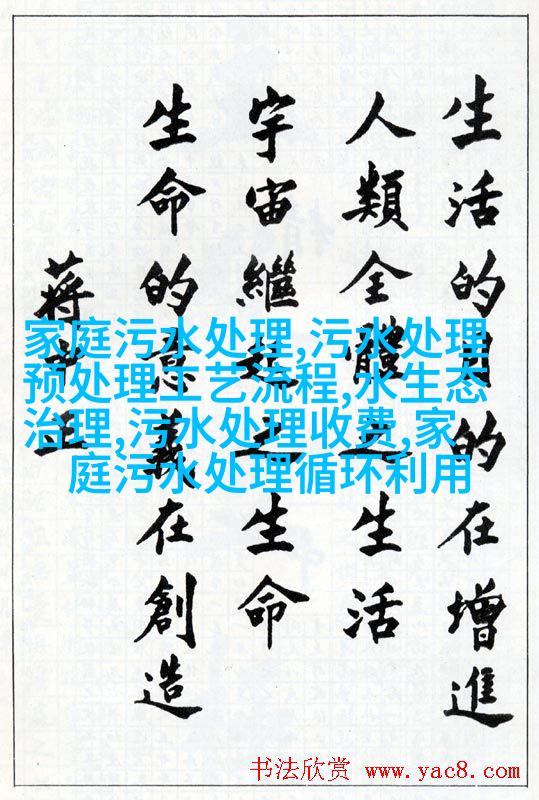 生活的目的在增進
人類全體之生活
宇宙繼起之生命
生命的意義在創造
蔣中正
家庭污水处理,污水处理
预处理工艺流程,水生态
治理,污水处理收费,家
庭污水处理循环利用
书法欣赏 www.yac8.com